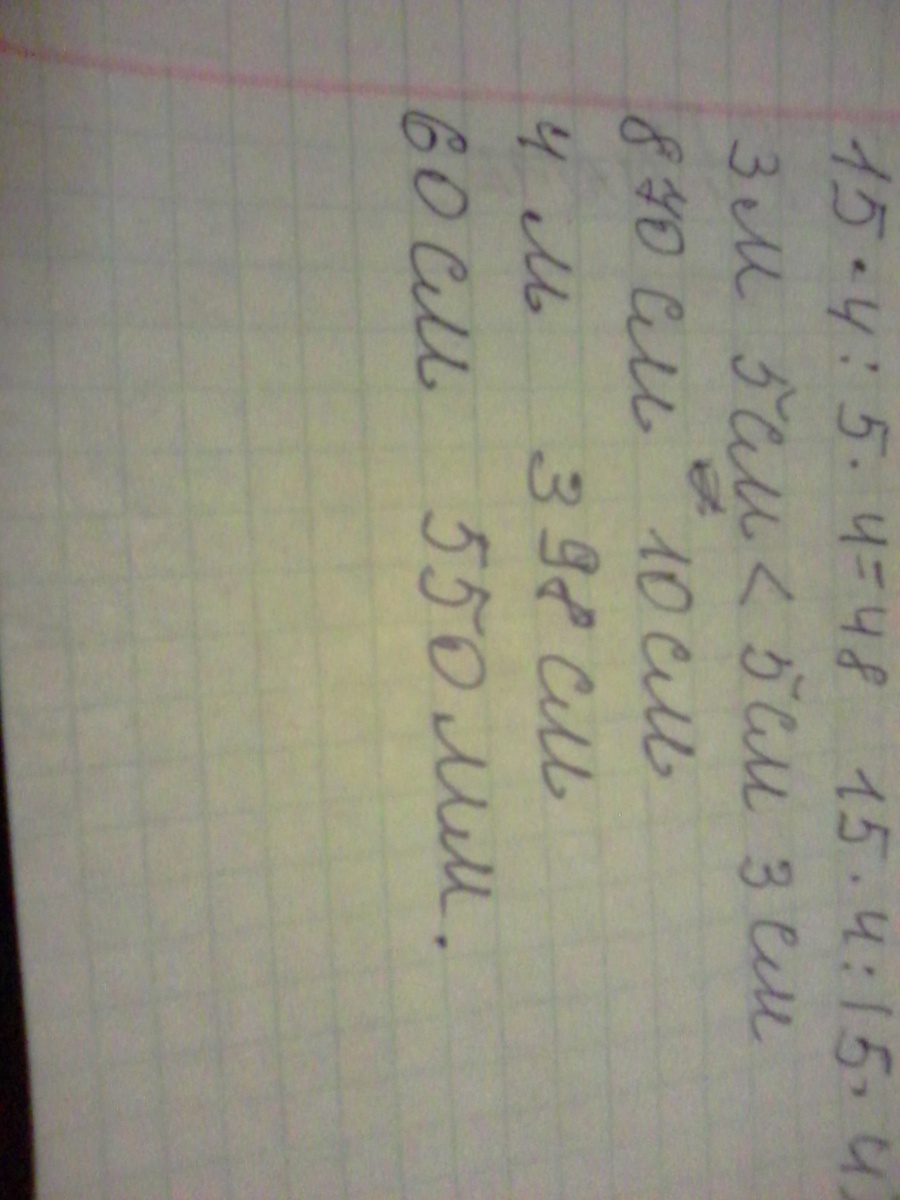 15·4:5·4=48 15·4:15·4
3м 5см < 5см 3см
870см 10см
4м 398см
60см 550мм.